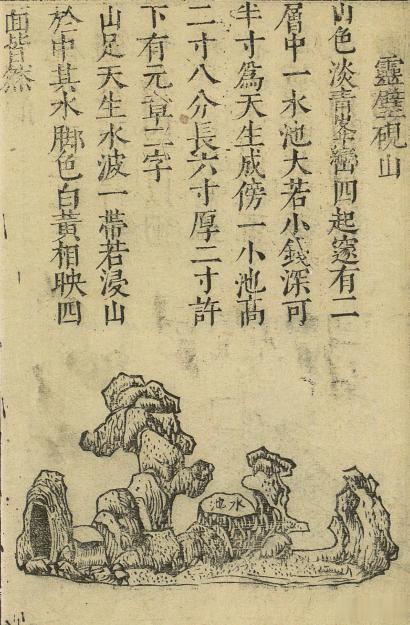 靈璧硯山
山色淡青峯巒四起邃有二
層中一水池大若小錢深可
半寸爲天生成傍一小池高
二寸八分長六寸厚二寸許
下有元章二字
山足天生水波一帶若浸山
於中其水脚色白黃相映四
面皆然
水池